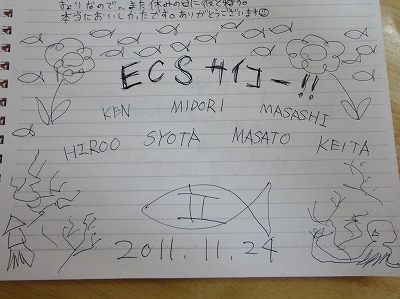 きょりなので、また休みの日に彼と帰り。
本当においしかったです。ありがとうございます
ECSサイコー!!
KEN MIDORI MASASHI
HIROO SYOTA MASATO KEITA
II
2011.11.24